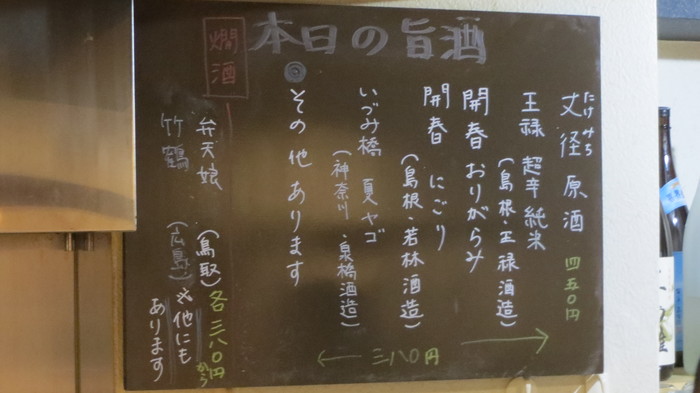 本日の旨酒
たけみち
丈径 原酒 四五〇円
王禄 超辛純米
(島根・王禄酒造)
開春 おりがらみ
開春 にごり
(島根・若林酒造)
いづみ橋 夏ヤゴ
(神奈川・泉橋酒造)
三八〇円
その他あります
燗酒
弁天娘 (鳥取)
竹鶴 (広島)
各三八〇円から
※他にも
あります